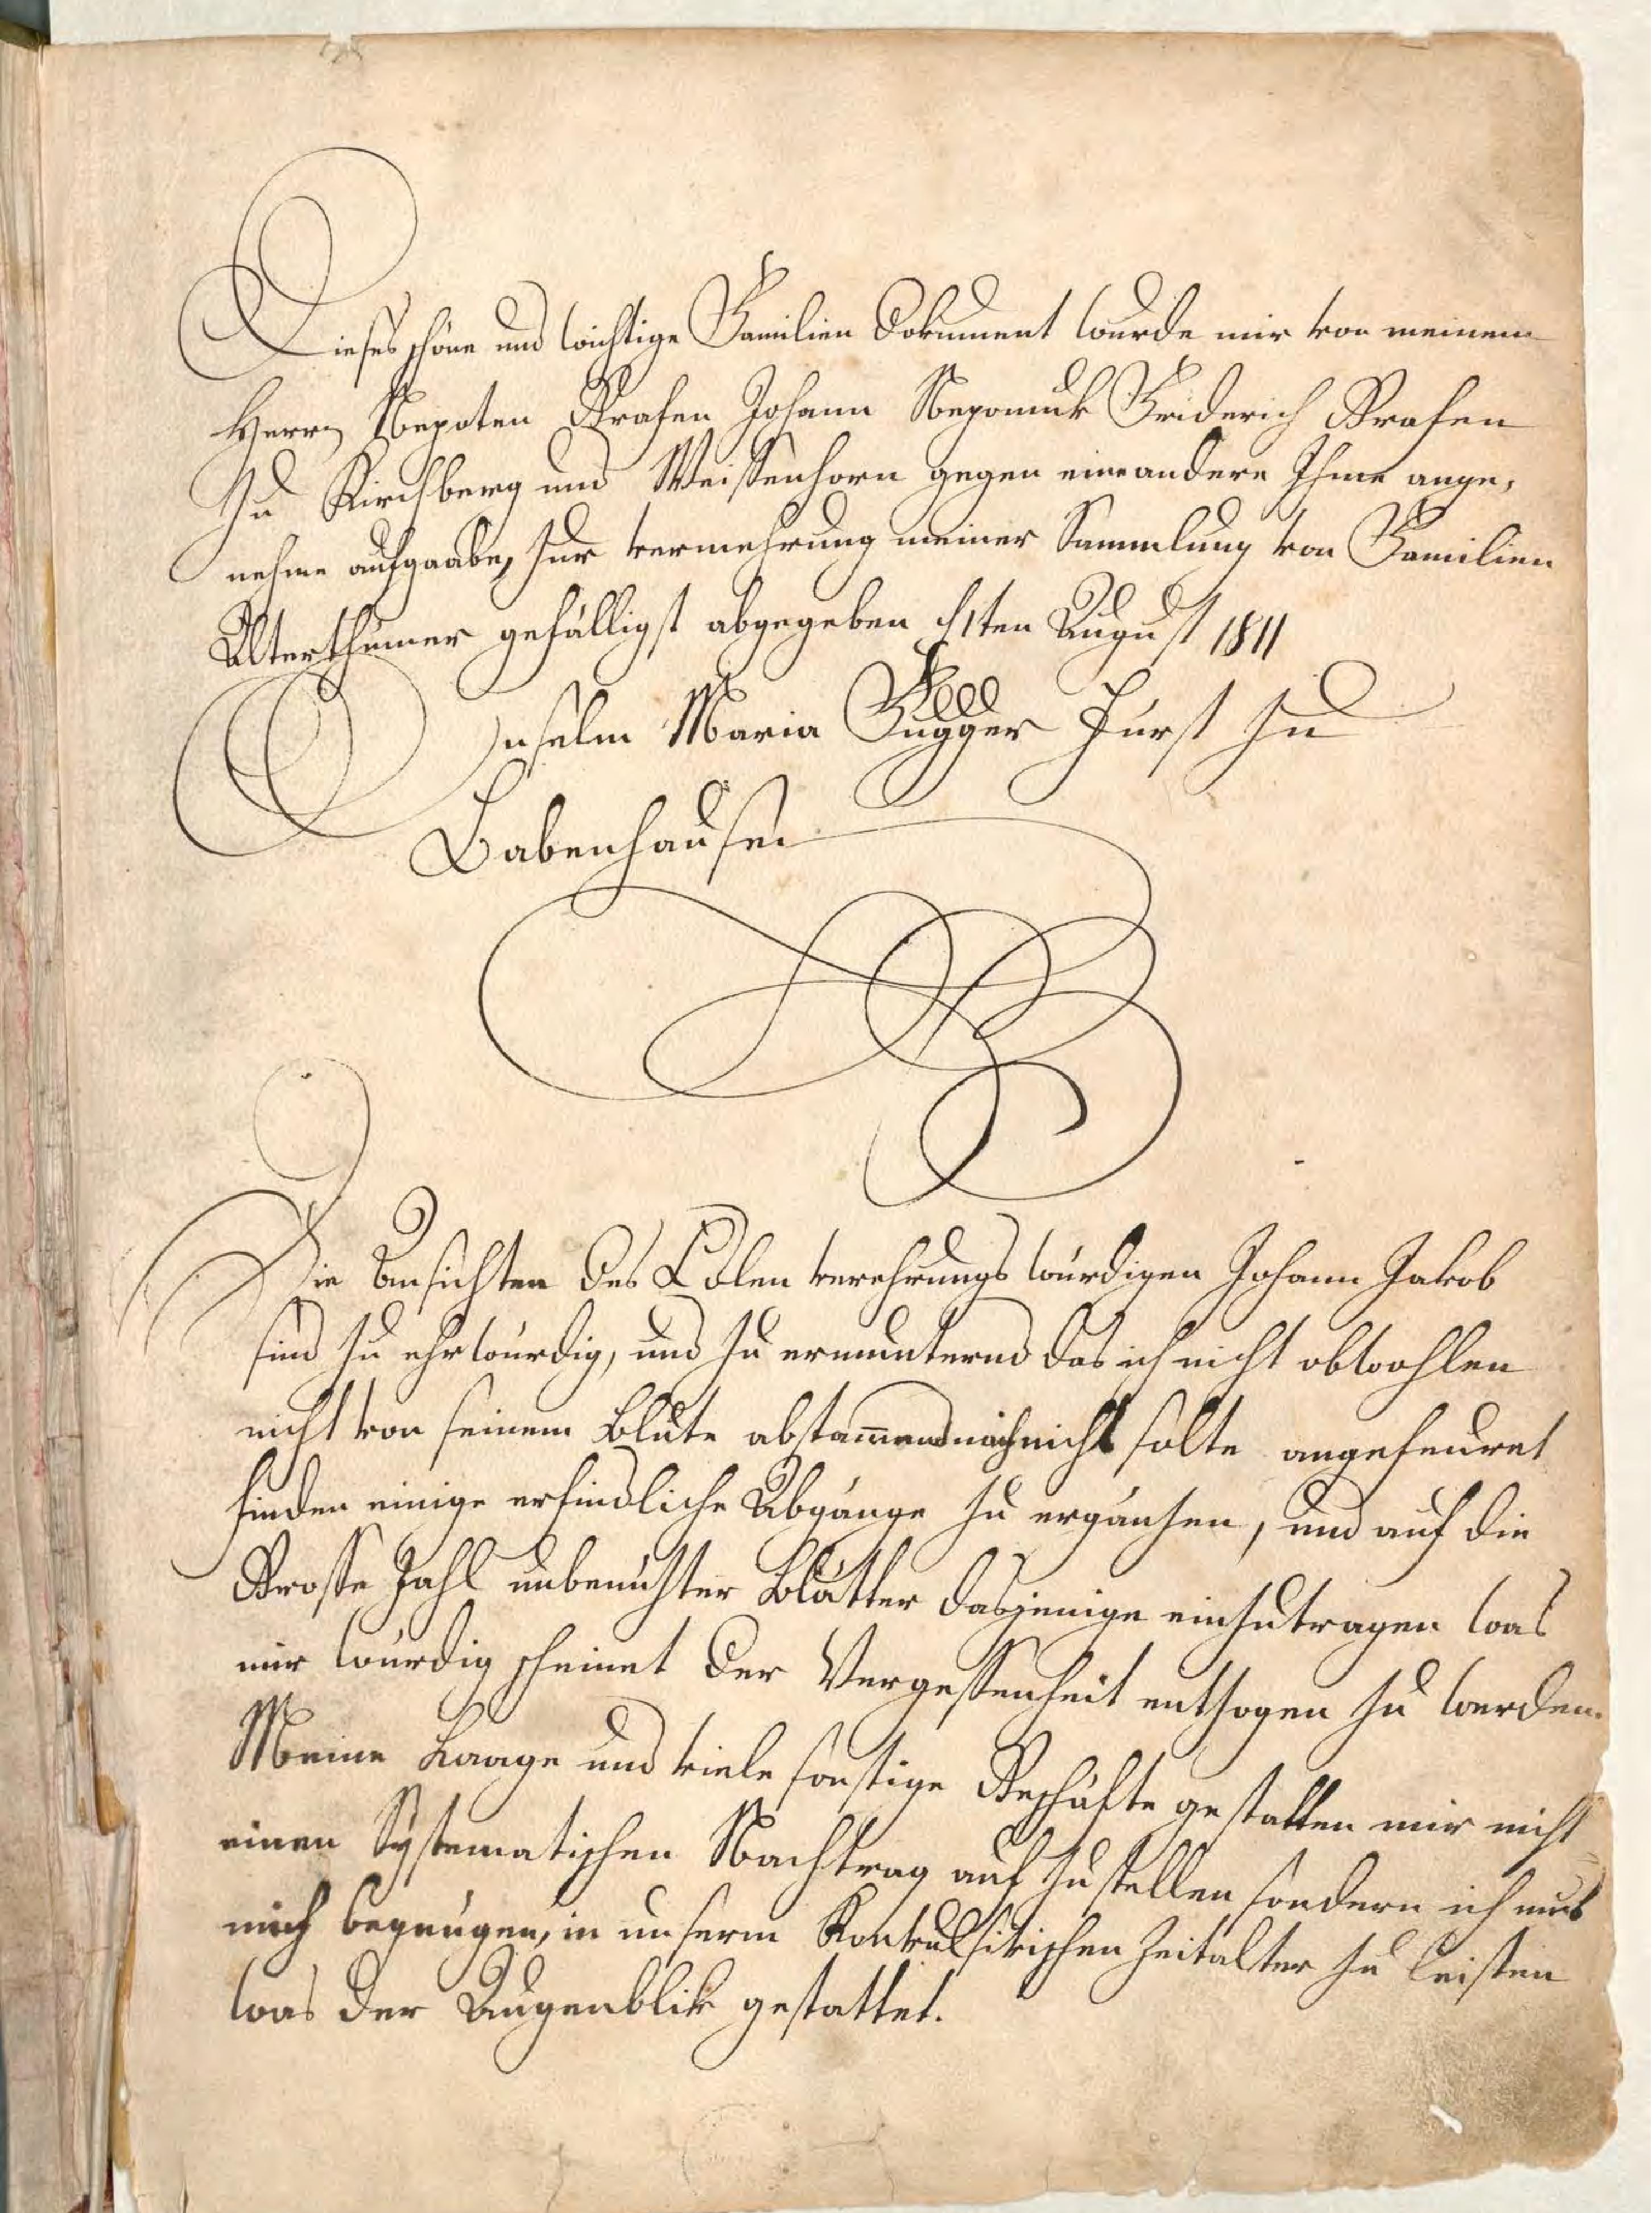 Dieses schöne und wichtige Familien Dokument wurde mir von meinem
Herrn Nepoten Grafen Johann Nepomuk Friderich Grafen
zu Kirchberg und Weissenhorn gegen eine andere Ihme ange,
nehme aufgaabe, zur vermehrung meiner Sammlung von Familien
Alterthümer gefälligst abgegeben ten August 1811
Anselm Maria Fugger Fürst zu
Babenhausen
Die Ansichten des Edlen verehrungswürdigen Johann Jakob
sind zu ehrwürdig, und zu ermunternd das ich nicht obwohlen
nicht von seinem Blute abstammend nicht solte angefeuret
finden einige erfindliche Abgänge zu ergänzen, und auf die
Grosse Zahl unbenuzter Blätter dasjenige einzutragen was
mir würdig scheinet der Vergessenheit entzogen zu werden.
Meine Laage und viele sonstige Geschäfte gestatten mir nicht
einen Systematischen Nachtrag auf zu stellen sondern ich mus
mich begnügen, in unserm Konvulsivischen Zeitalter zu leisten
was der Augenblik gestattet.